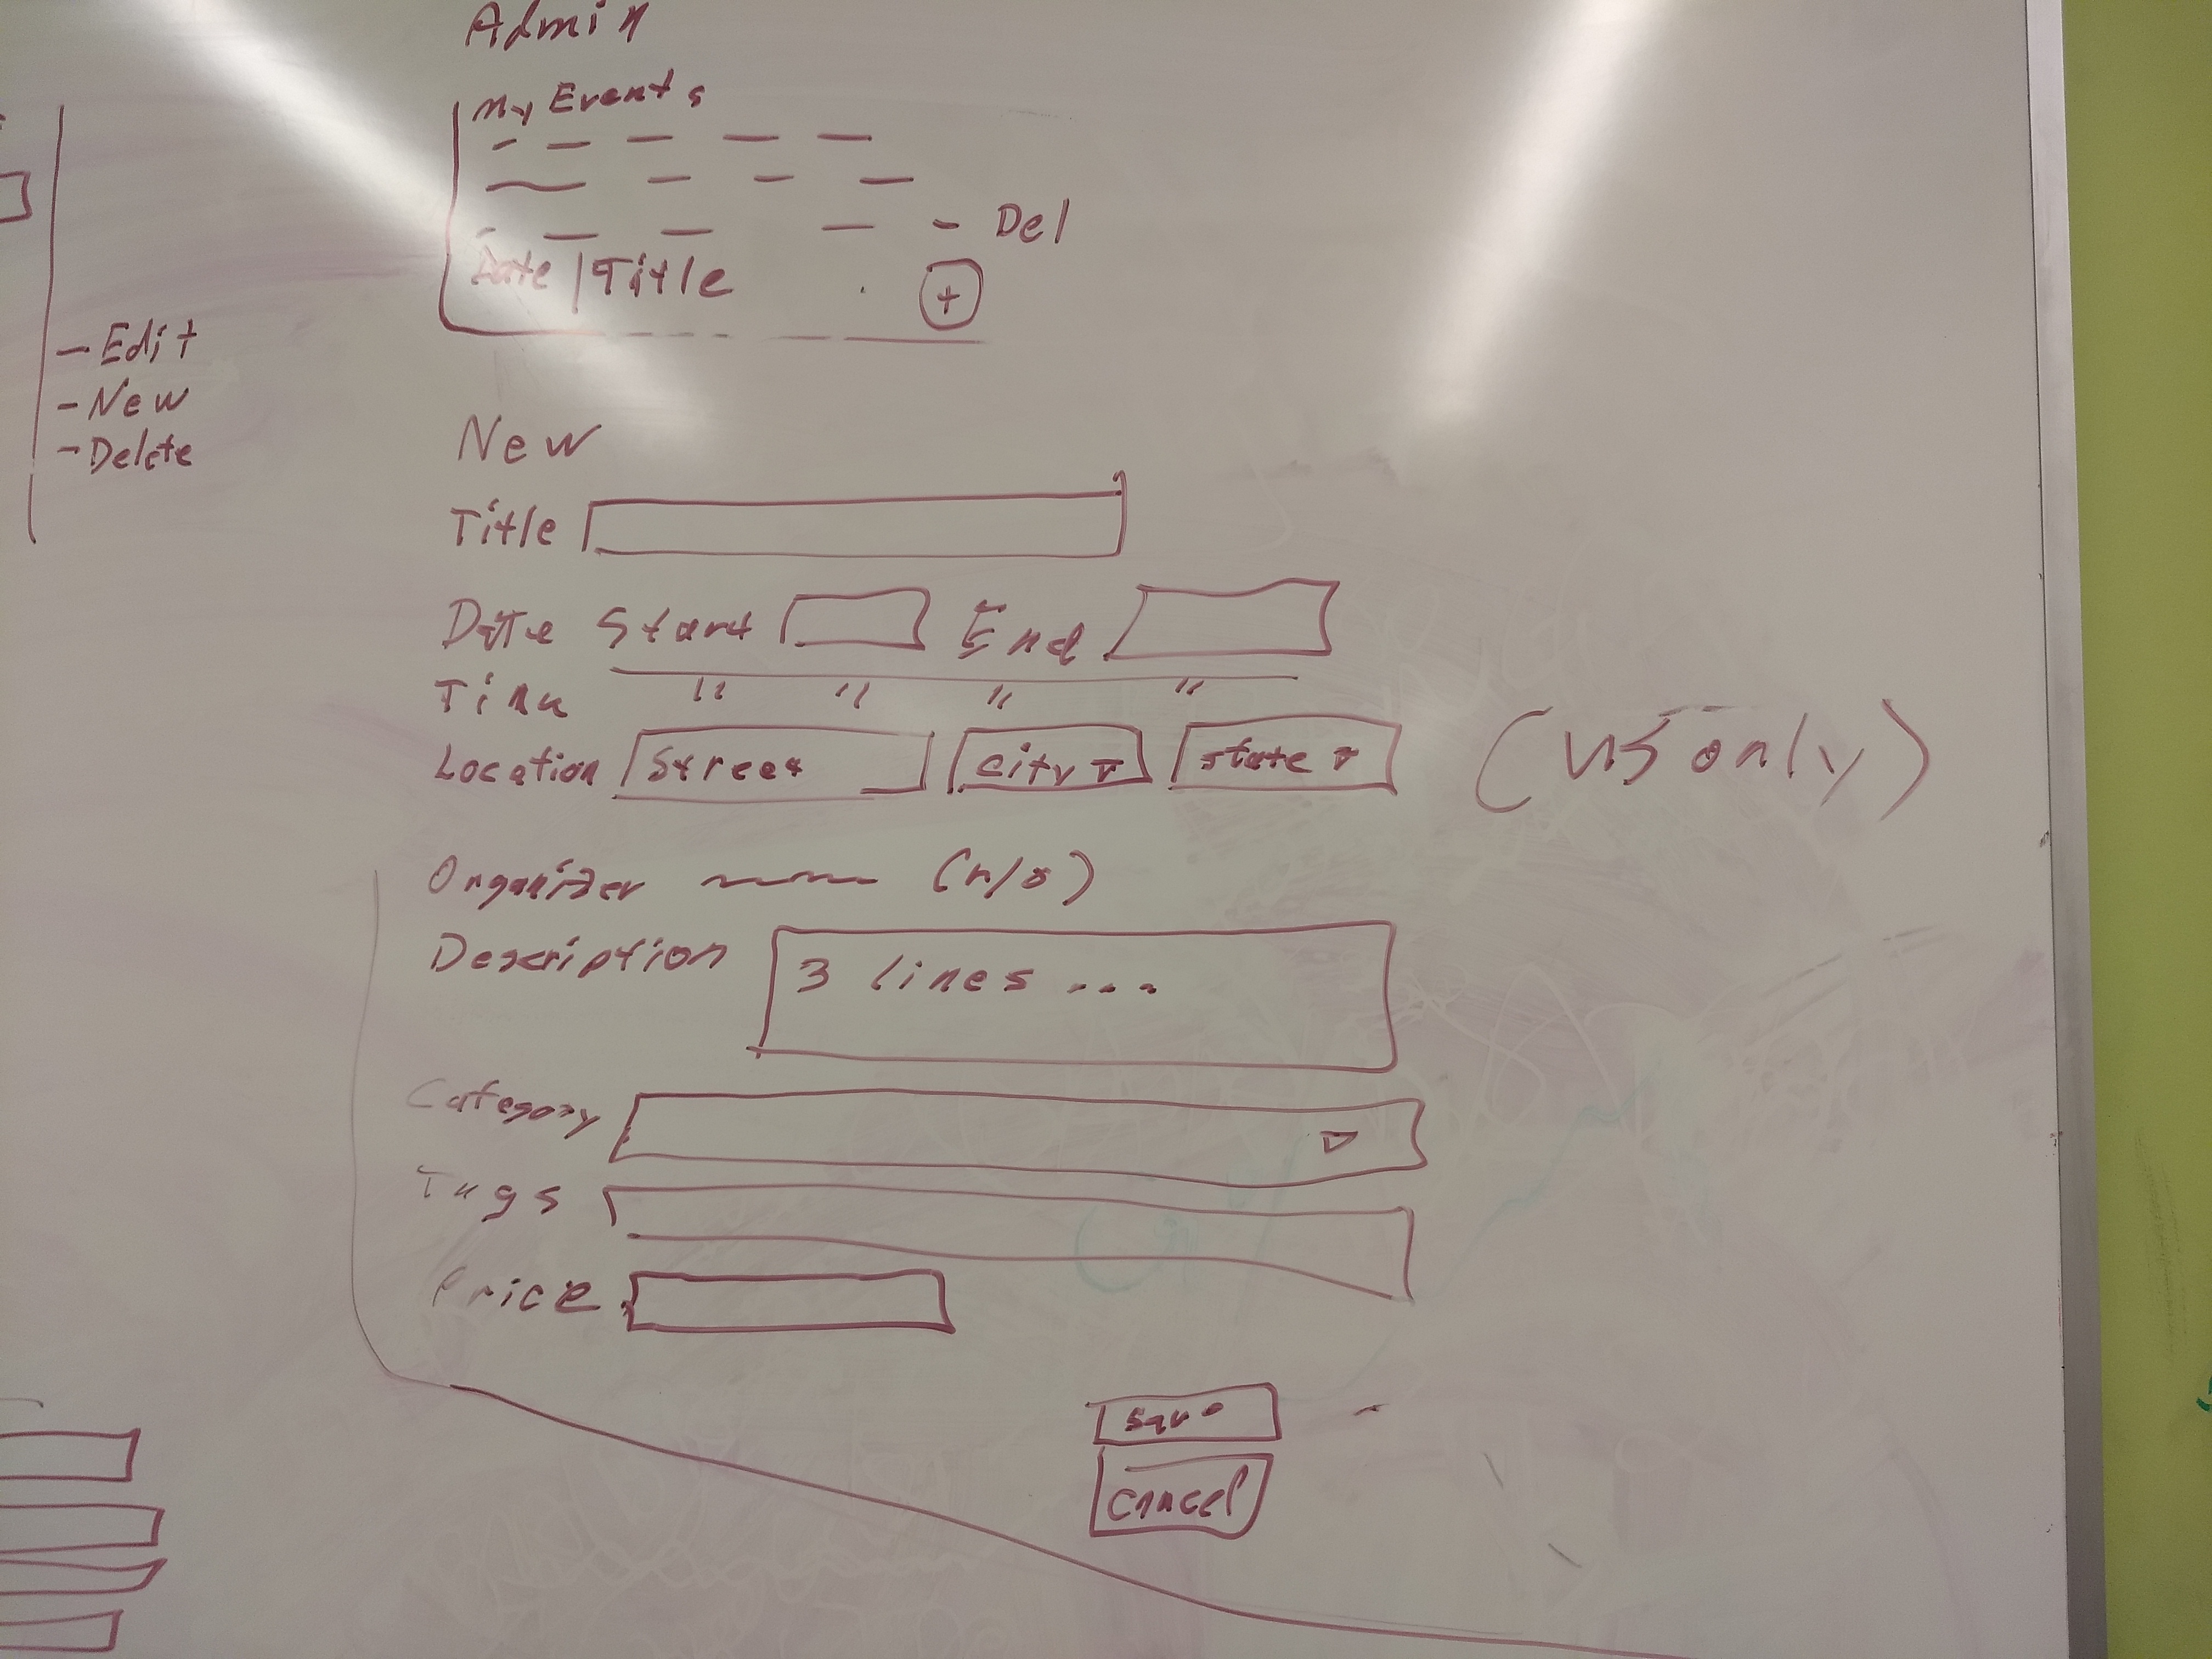 Admin
My Events
- Del
Date | Title
+
- Edit
- New
- Delete
New
Title
Date Start End
Time " " " "
Location Street city state (US only)
Organizer (r/o)
Description 3 lines ...
Category
Tags
Price
save
cancel